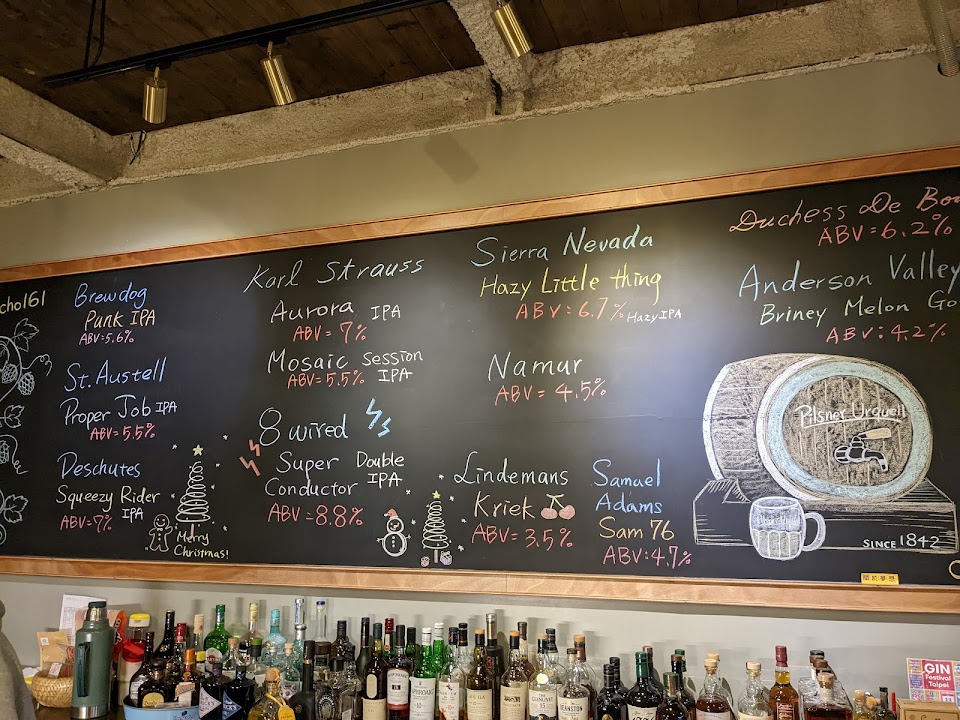 cho161
Brewdog
Punk IPA
ABV=5.6%
St. Austell
Proper Job IPA
ABV=5.5%
Deschutes
Squeezy Rider
IPA
ABV=7%
Merry
Christmas!
Karl Strauss
Aurora IPA
ABV=7%
Mosaic Session
ABV=5.5% IPA
8 wired
Super Double
Conductor IPA
ABV=8.8%
Sierra Nevada
Hazy Little thing
ABV:6.7% Hazy IPA
Namur
ABV=4.5%
Lindemans
Kriek
ABV=3.5%
Samuel
Adams
Sam 76
ABV:4.7%
Duchess De Bo
ABV=6.2%
Anderson Valley
Briney Melon Go
ABV:4.2%
Pilsner Urquell
SINCE 1842
GIN
Festival
Taipei